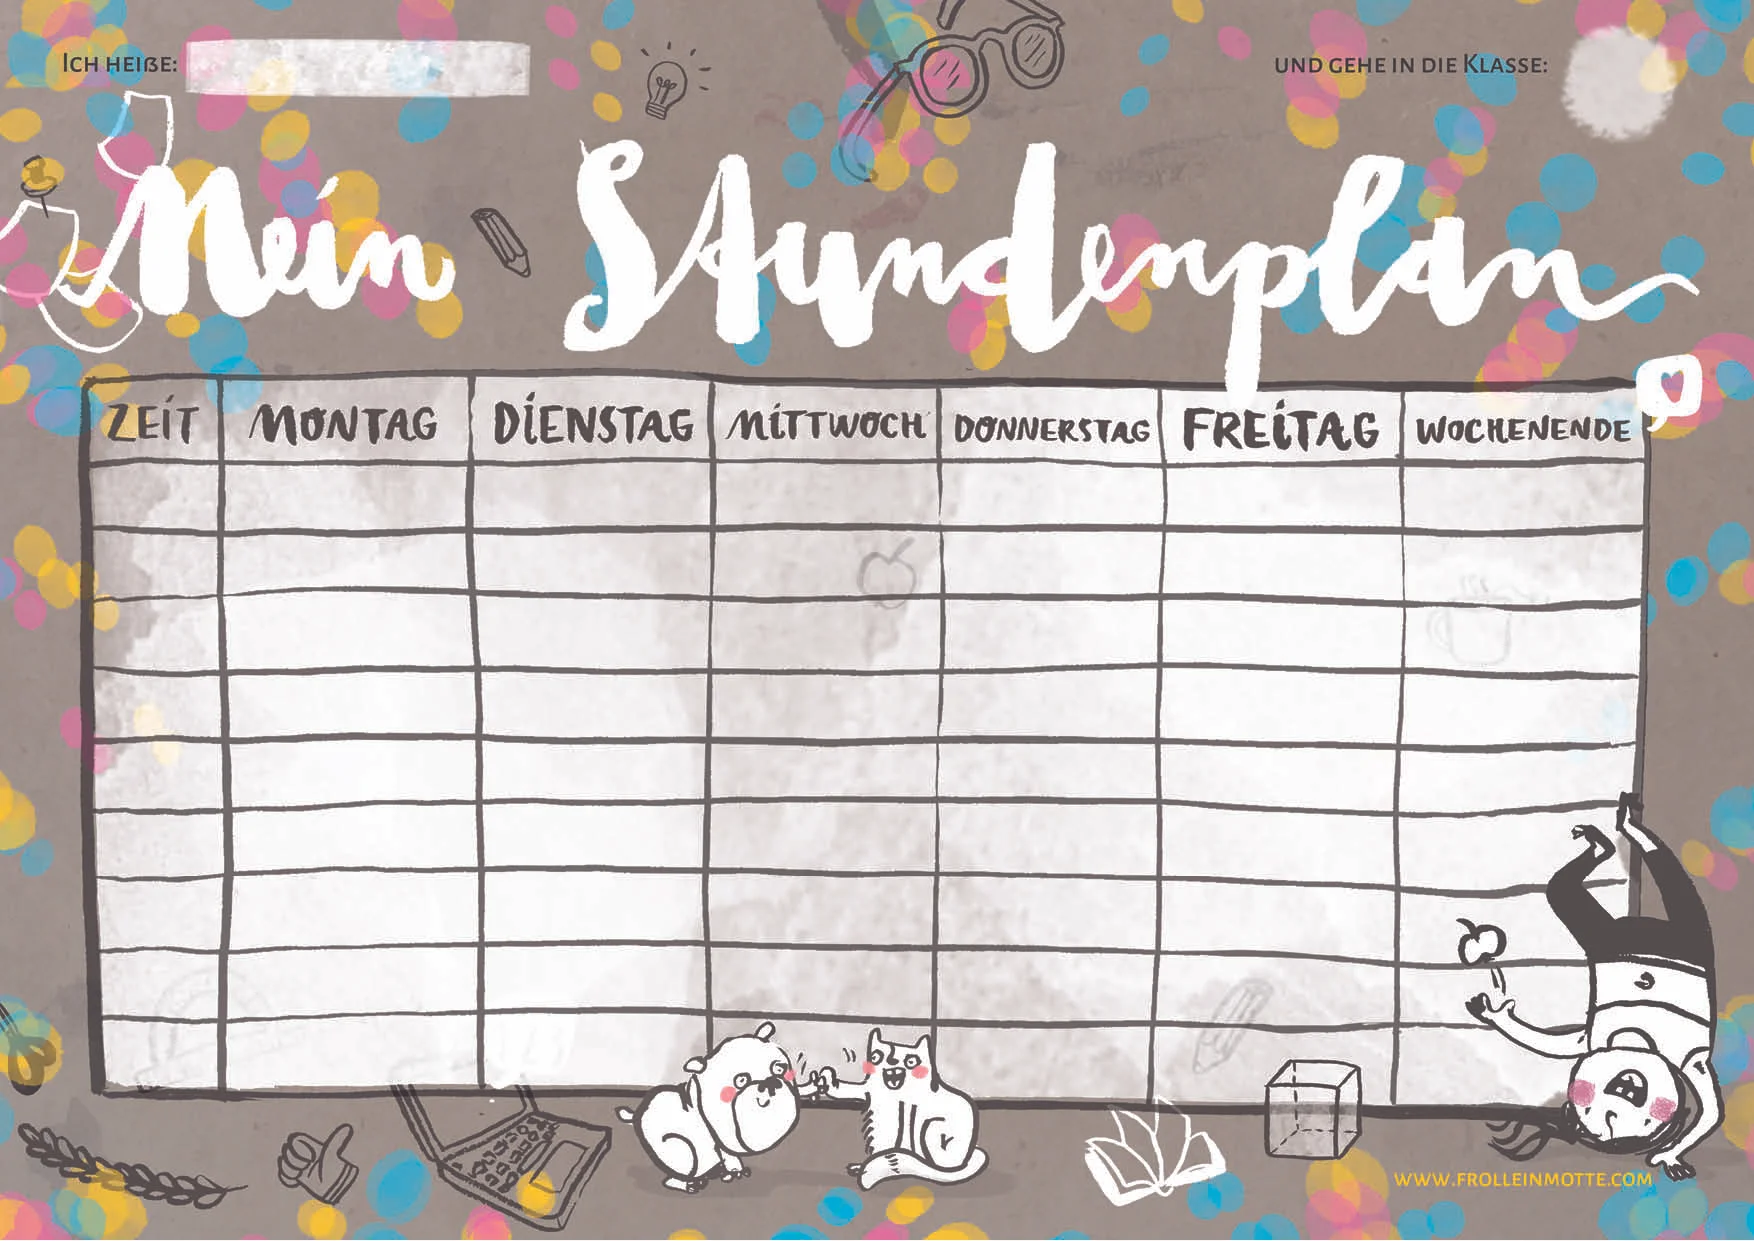 Ich heiße:
und gehe in die Klasse:
Mein Stundenplan
ZEIT MONTAG DIENSTAG MITTWOCH DONNERSTAG FREITAG WOCHENENDE
www.frolleinmotte.com